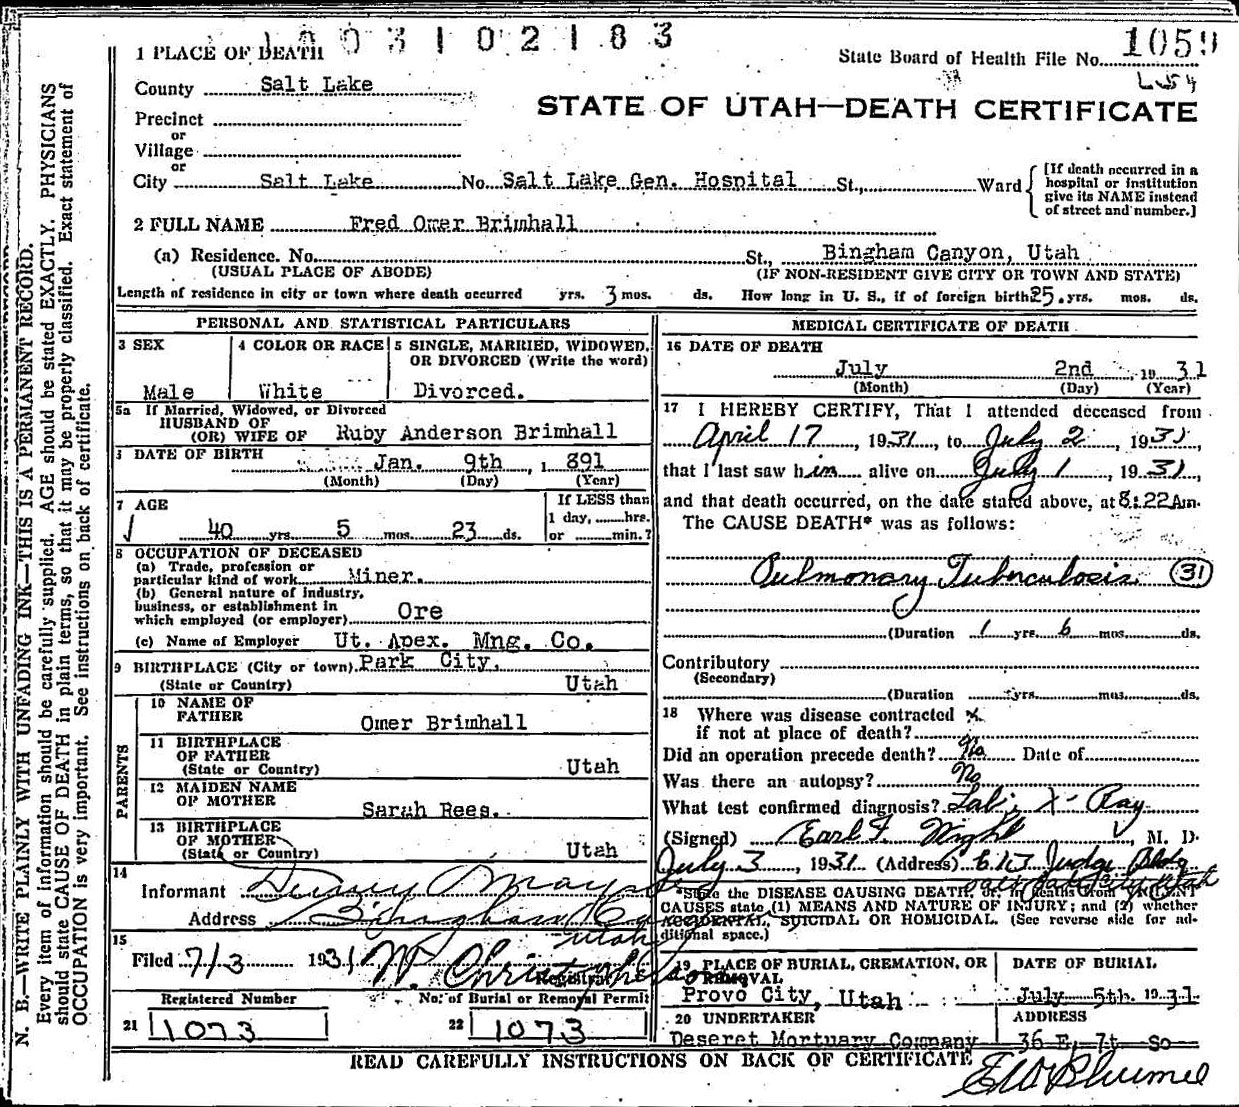 1003102183
1 PLACE OF DEATH
State Board of Health File No. 1059
County Salt Lake
STATE OF UTAH—DEATH CERTIFICATE
Precinct
or
Village
or
City Salt Lake No. Salt Lake Gen. Hospital St., Ward
[If death occurred in a
hospital or institution
give its NAME instead
of street and number.]
2 FULL NAME Fred Omer Brimhall
(a) Residence. No. St., Bingham Canyon, Utah
(USUAL PLACE OF ABODE) (IF NON-RESIDENT GIVE CITY OR TOWN AND STATE)
Length of residence in city or town where death occurred yrs. 3 mos. ds. How long in U. S., if of foreign birth 25. yrs. mos. ds.
PERSONAL AND STATISTICAL PARTICULARS
3 SEX
Male
4 COLOR OR RACE
White
5 SINGLE, MARRIED, WIDOWED,
OR DIVORCED (Write the word)
Divorced.
5a If Married, Widowed, or Divorced
HUSBAND OF
(OR) WIFE OF Ruby Anderson Brimhall
DATE OF BIRTH Jan. 9th, 1 891
(Month) (Day) (Year)
7 AGE
40 yrs. 5 mos. 23 ds.
If LESS than
1 day, hrs.
or min.?
8 OCCUPATION OF DECEASED
(a) Trade, profession or
particular kind of work Miner.
(b) General nature of industry,
business, or establishment in
which employed (or employer) Ore
(c) Name of Employer Ut. Apex. Mng. Co.
9 BIRTHPLACE (City or town). Park City.
(State or Country) Utah
PARENTS
10 NAME OF
FATHER Omer Brimhall
11 BIRTHPLACE
OF FATHER
(State or Country) Utah
12 MAIDEN NAME
OF MOTHER Sarah Rees.
13 BIRTHPLACE
OF MOTHER
(State or Country) Utah
14
Informant
Address Bingham
Utah
15
Filed 7/3 1931 W. Christopherson
Registrar
Registered Number
21 1073
No. of Burial or Removal Permit
22 1073
MEDICAL CERTIFICATE OF DEATH
16 DATE OF DEATH
July 2nd, 19 31
(Month) (Day) (Year)
17 I HEREBY CERTIFY, That I attended deceased from
April 17, 1931, to July 2, 1931,
that I last saw him alive on July 1, 1931,
and that death occurred, on the date stated above, at 8:22 Am.
The CAUSE DEATH* was as follows:
Pulmonary Tuberculosis. 31
(Duration 1 yrs. 6 mos. ds.
Contributory
(Secondary)
(Duration yrs. mos. ds.
18 Where was disease contracted
if not at place of death?
Did an operation precede death? No Date of
Was there an autopsy? No
What test confirmed diagnosis? Lab; X-Ray
(Signed) Earl F. Wight, M. D.
July 3, 1931 (Address) 613 Judge Bldg
Salt Lake City Utah
*State the DISEASE CAUSING DEATH, or, in deaths from VIOLENT
CAUSES state (1) MEANS AND NATURE OF INJURY; and (2) whether
ACCIDENTAL, SUICIDAL OR HOMICIDAL. (See reverse side for ad-
ditional space.)
19 PLACE OF BURIAL, CREMATION, OR
REMOVAL
Provo City, Utah
DATE OF BURIAL
July 5th. 1931.
20 UNDERTAKER
Deseret Mortuary Company
ADDRESS
36 E. 7t So
READ CAREFULLY INSTRUCTIONS ON BACK OF CERTIFICATE
N. B.—WRITE PLAINLY WITH UNFADING INK—THIS IS A PERMANENT RECORD.
Every item of information should be carefully supplied. AGE should be stated EXACTLY. PHYSICIANS
should state CAUSE OF DEATH in plain terms, so that it may be properly classified. Exact statement of
OCCUPATION is very important. See instructions on back of certificate.